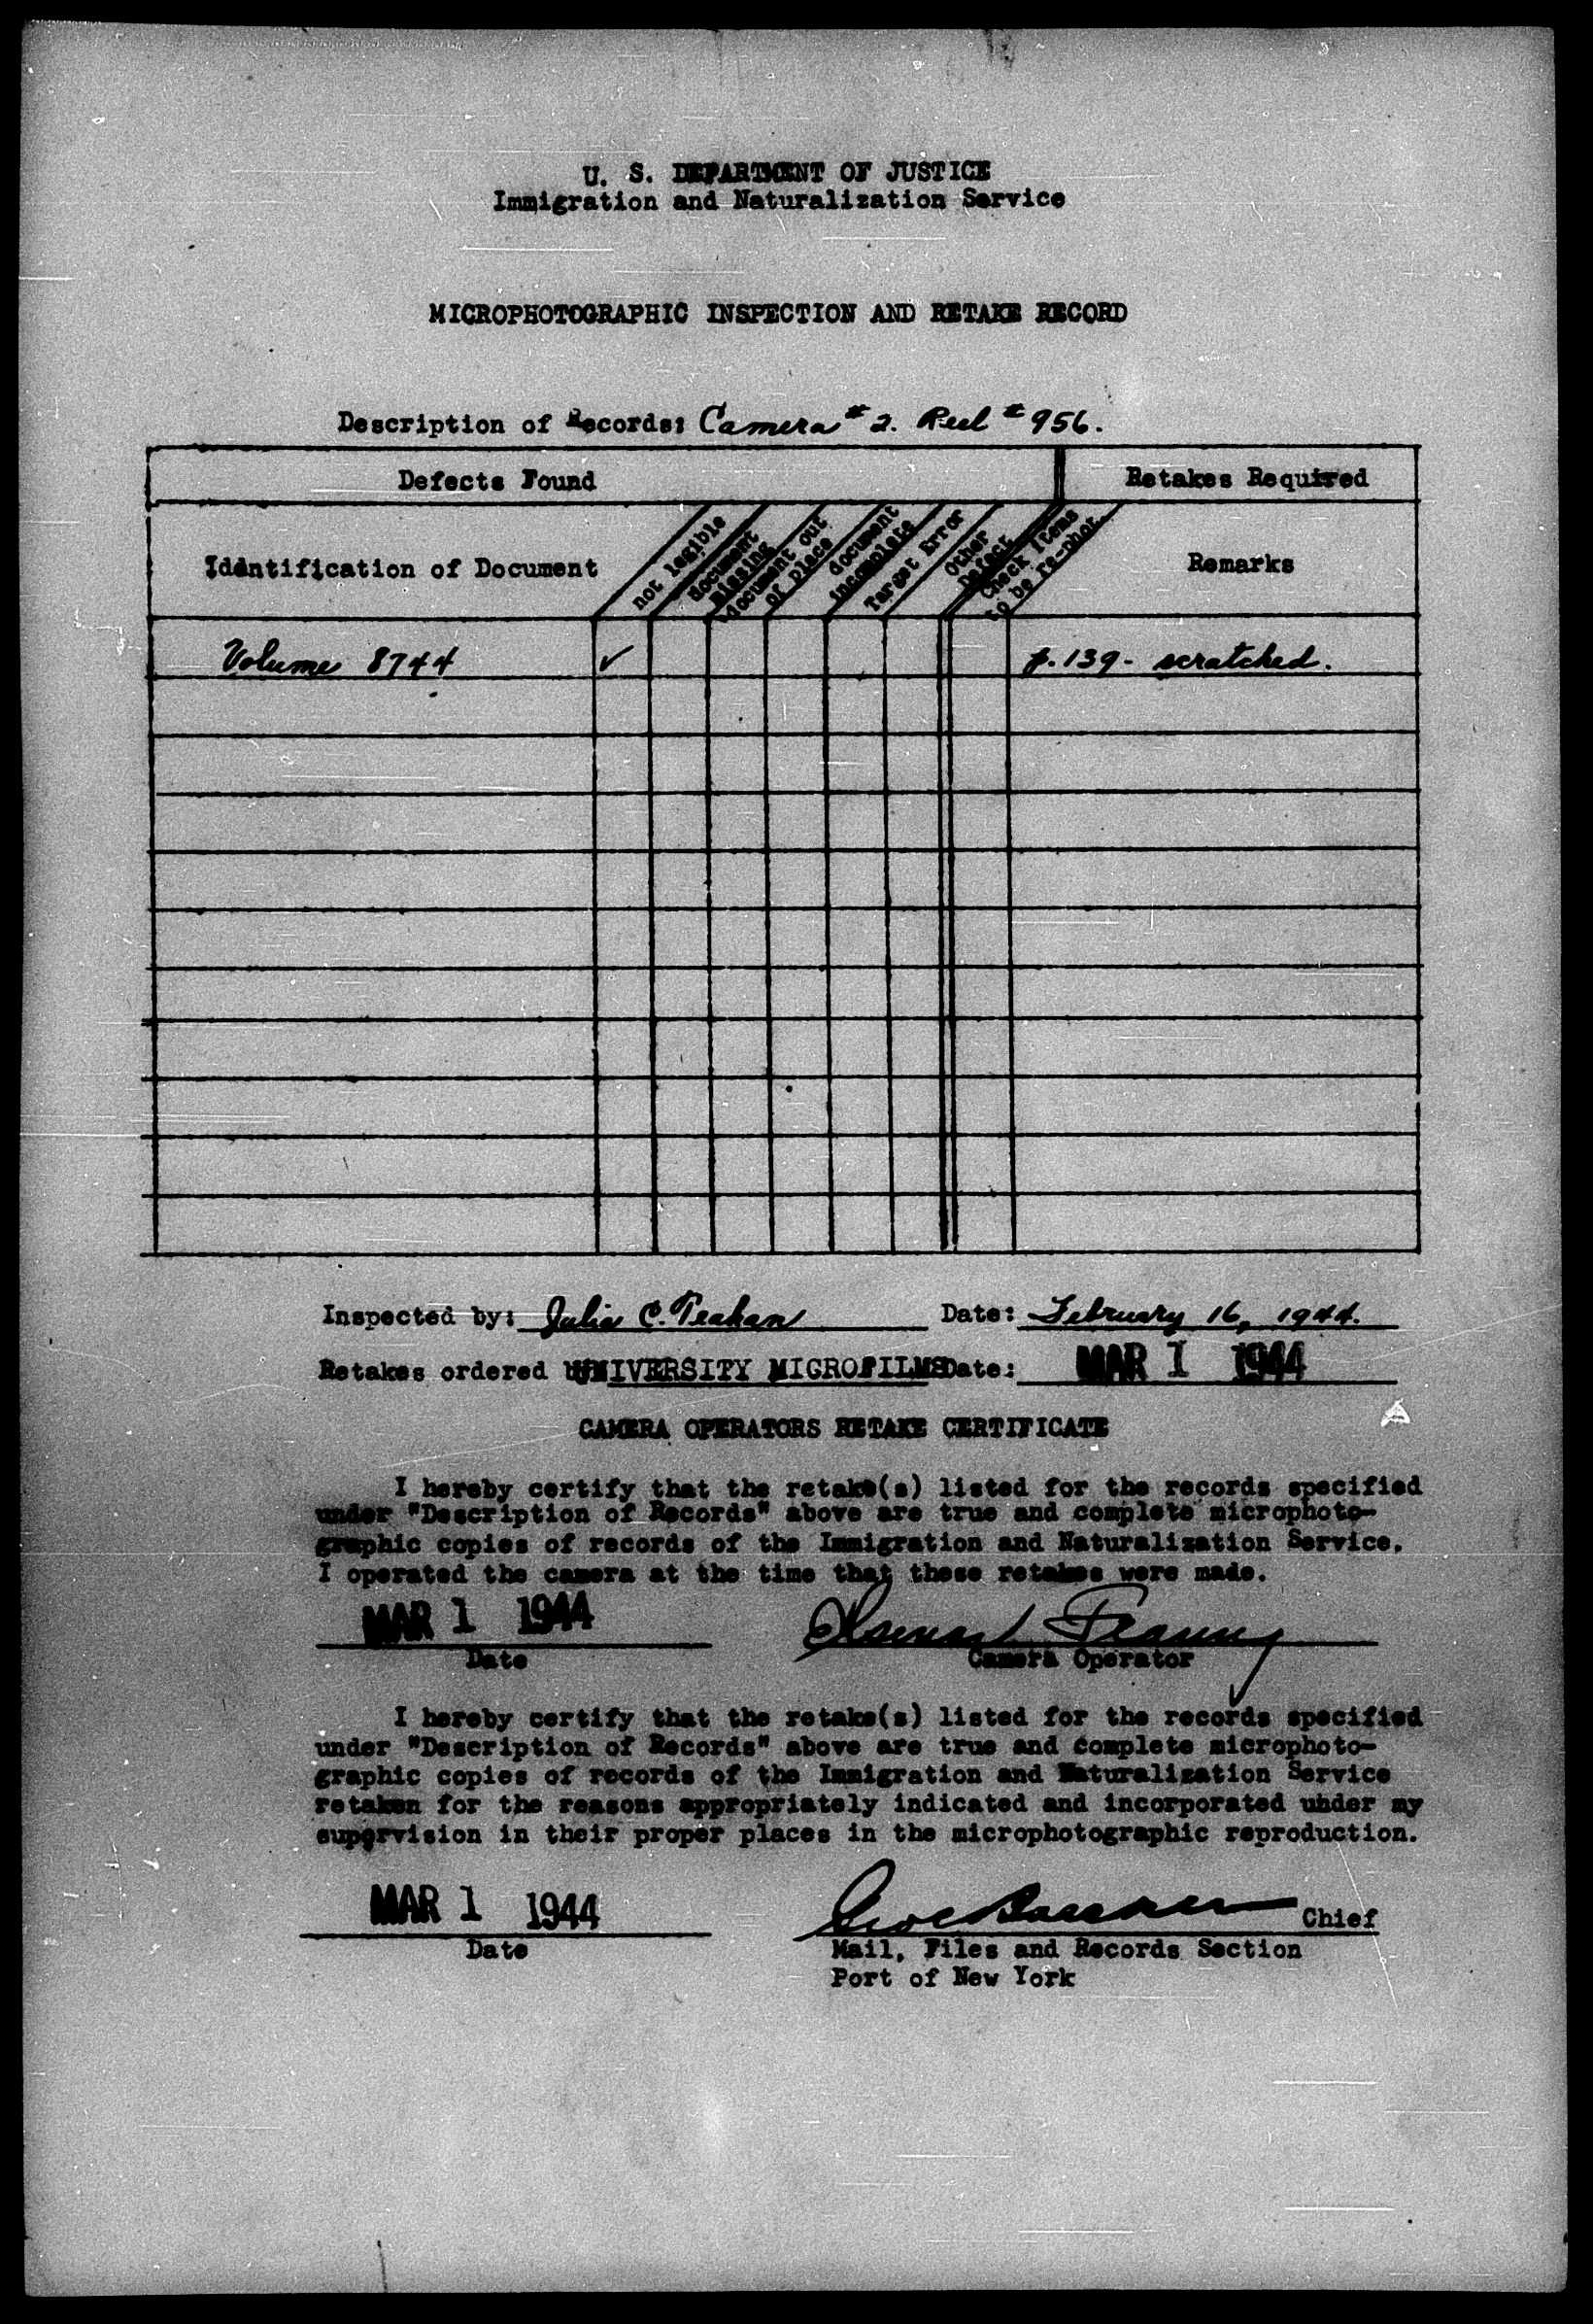 U. S. DEPARTMENT OF JUSTICE
Immigration and Naturalization Service
MICROPHOTOGRAPHIC INSPECTION AND RETAKE RECORD
Description of Records: Camera # 2. Reel # 956.
Defects Found
Retakes Required
Identification of Document
not legible
document missing
document out of place
document incomplete
Target Error
Other Defect
Check Items to be re-phot.
Remarks
Volume 8744 ✓ p. 139 - scratched.
Inspected by: Julia C. Date: February 16, 1944.
Retakes ordered UNIVERSITY MICROFILMS Date: MAR 1 1944
CAMERA OPERATORS RETAKE CERTIFICATE
I hereby certify that the retake(s) listed for the records specified
under "Description of Records" above are true and complete microphoto-
graphic copies of records of the Immigration and Naturalization Service.
I operated the camera at the time that these retakes were made.
MAR 1 1944
Date
Camera Operator
I hereby certify that the retake(s) listed for the records specified
under "Description of Records" above are true and complete microphoto-
graphic copies of records of the Immigration and Naturalization Service
retaken for the reasons appropriately indicated and incorporated under my
supervision in their proper places in the microphotographic reproduction.
MAR 1 1944
Chief
Date
Mail, Files and Records Section
Port of New York